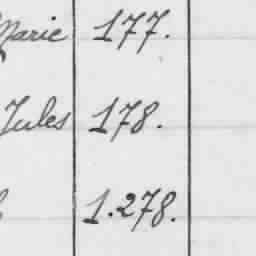 Marie 177.
Jules 178.
1.278.